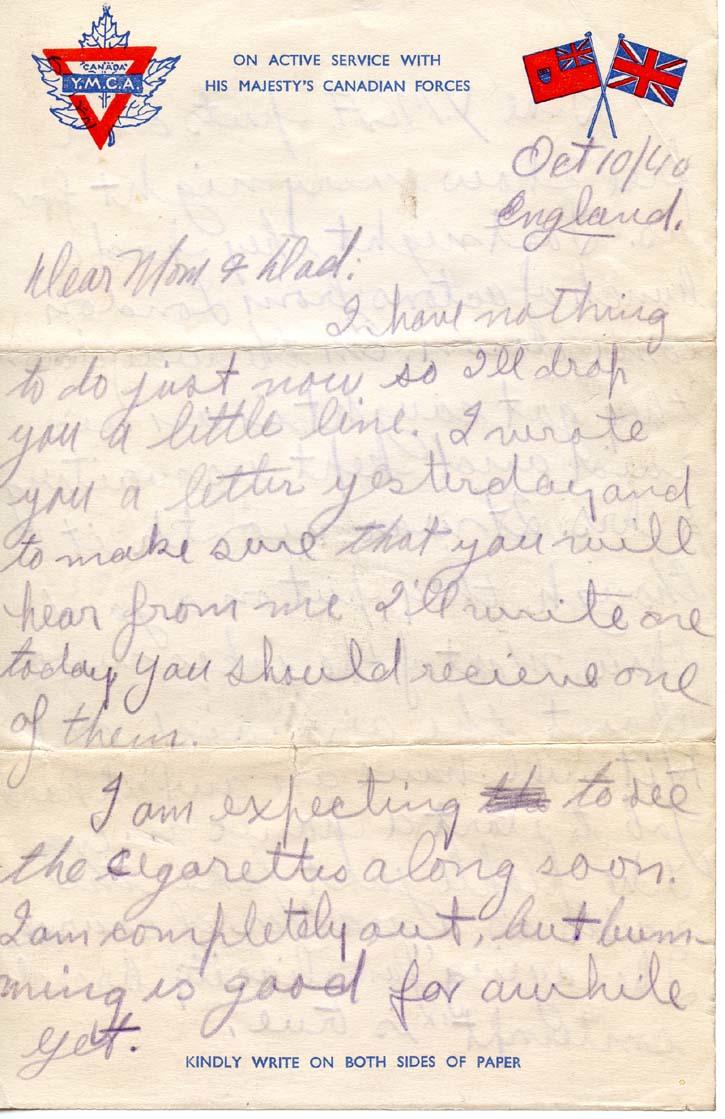 CANADA
Y.M.C.A.
ON ACTIVE SERVICE WITH
HIS MAJESTY'S CANADIAN FORCES
Oct 10/40
England.
Dear Mom & Dad:
I have nothing
to do just now so I'll drop
you a little line. I wrote
you a letter yesterday and
to make sure that you will
hear from me I'll write one
today you should recieve one
of them.
I am expecting to see
the cigarettes along soon.
I am completely out, but bum-
ming is good for awhile
yet.
KINDLY WRITE ON BOTH SIDES OF PAPER